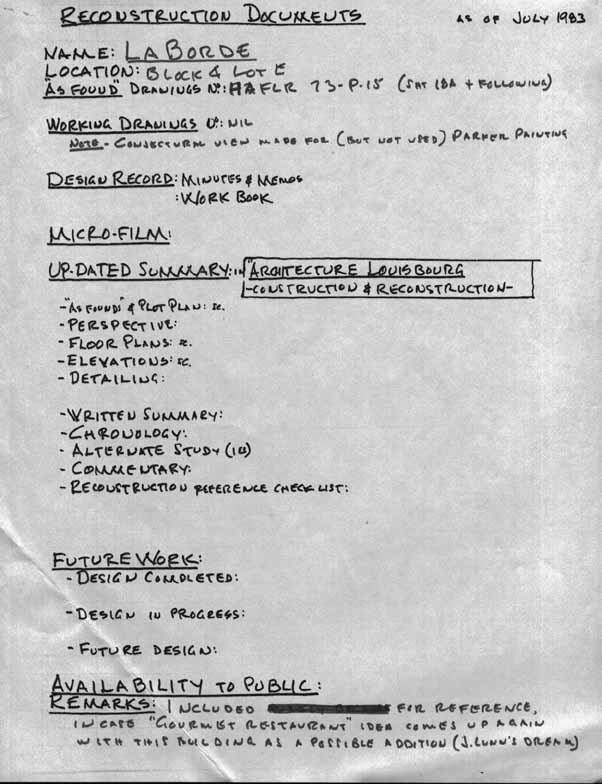 RECONSTRUCTION DOCUMENTS AS OF JULY 1983
NAME: LA BORDE
LOCATION: BLOCK 4 LOT E
"AS FOUND" DRAWINGS No: HAFLR 73-P-15 (SHT 18A + FOLLOWING)
WORKING DRAWINGS No: NIL
NOTE - CONJECTURAL VIEW MADE FOR (BUT NOT USED) PARKER PAINTING
DESIGN RECORD: MINUTES & MEMOS
: WORK BOOK
MICRO-FILM:
UP-DATED SUMMARY: in "ARCHITECTURE LOUISBOURG
-CONSTRUCTION & RECONSTRUCTION-
- "AS FOUNDS" & PLOT PLAN: sc.
- PERSPECTIVE:
- FLOOR PLANS: sc.
- ELEVATIONS: sc.
- DETAILING:
- WRITTEN SUMMARY:
- CHRONOLOGY:
- ALTERNATE STUDY
- COMMENTARY:
- RECONSTRUCTION REFERENCE CHECK LIST:
FUTURE WORK:
- DESIGN COMPLETED:
- DESIGN IN PROGRESS:
- FUTURE DESIGN:
AVAILABILITY TO PUBLIC:
REMARKS: INCLUDED FOR REFERENCE,
IN CASE "GOURMET RESTAURANT" IDEA COMES UP AGAIN
WITH THIS BUILDING AS A POSSIBLE ADDITION (J. LUNN'S DREAM)